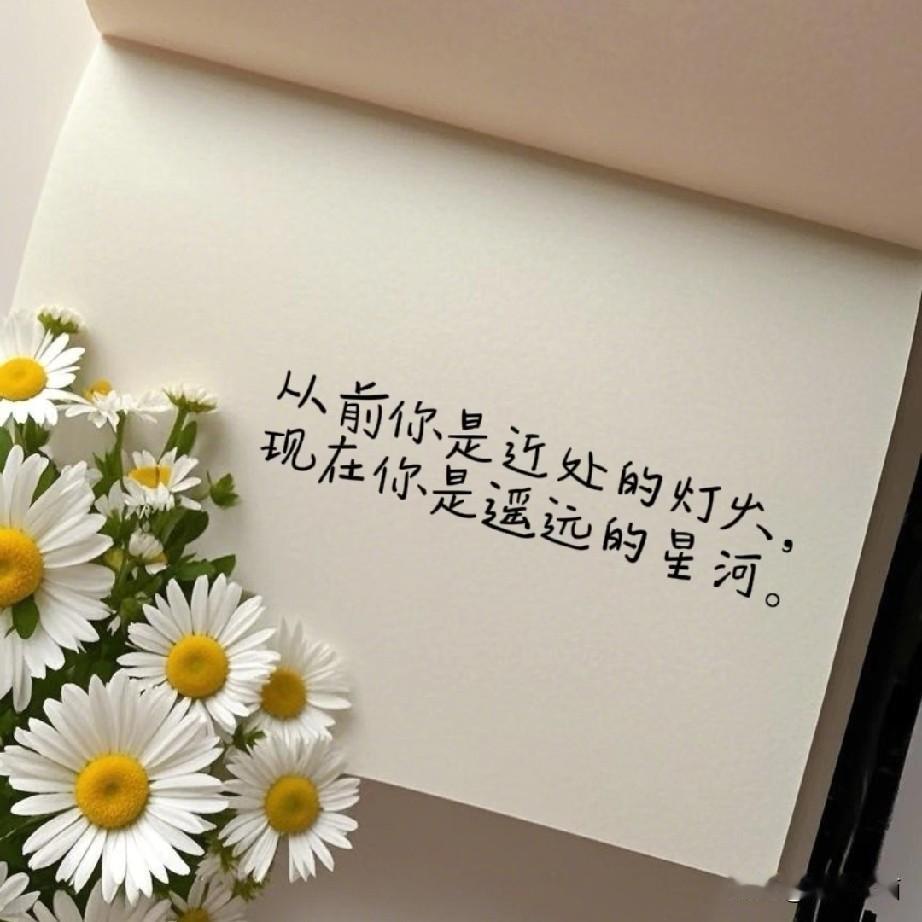 从前你是近处的灯火，
现在你是遥远的星河。